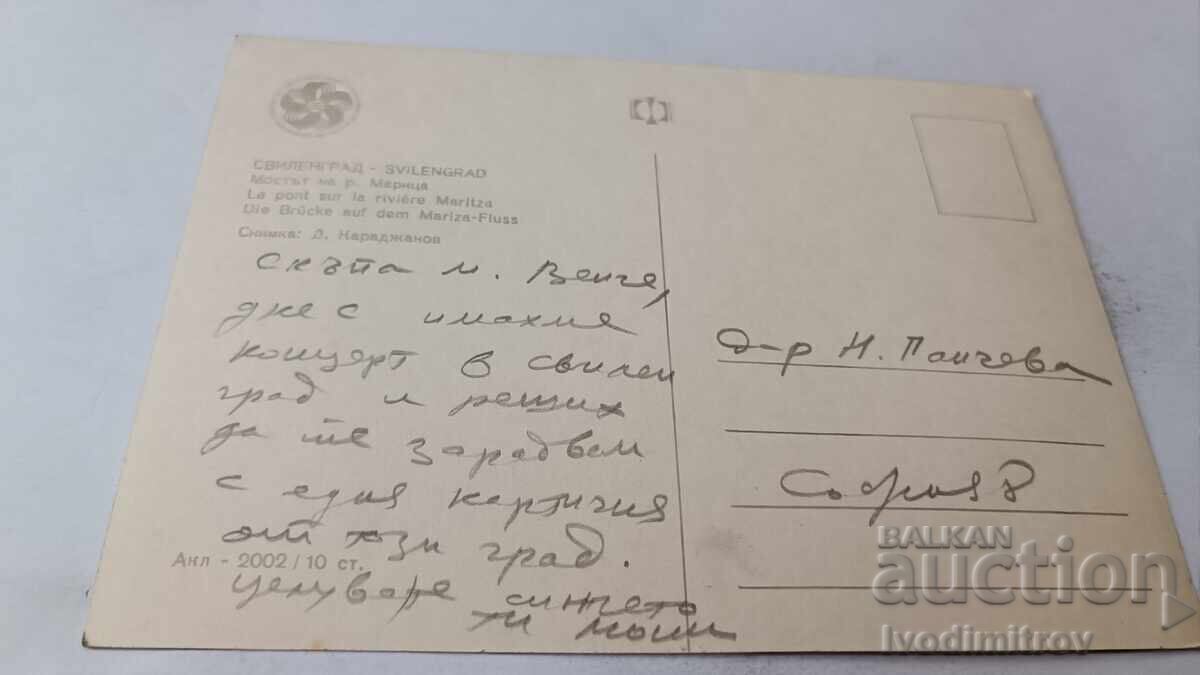 СВИЛЕНГРАД - SVILENGRAD
Мостът на р. Марица
Le pont sur la rivière Maritza
Die Brücke auf dem Mariza-Fluss
Снимка: Д. Караджанов
Скъпа м. Венче,
днес имахме
концерт в Свилен
град и реших
да те зарадвам
с една картичка
от този град.
Целувам те
ти
Анл - 2002 / 10 ст.
д-р Н. Панчева
София
BALKAN
auction
Ivodimitrov